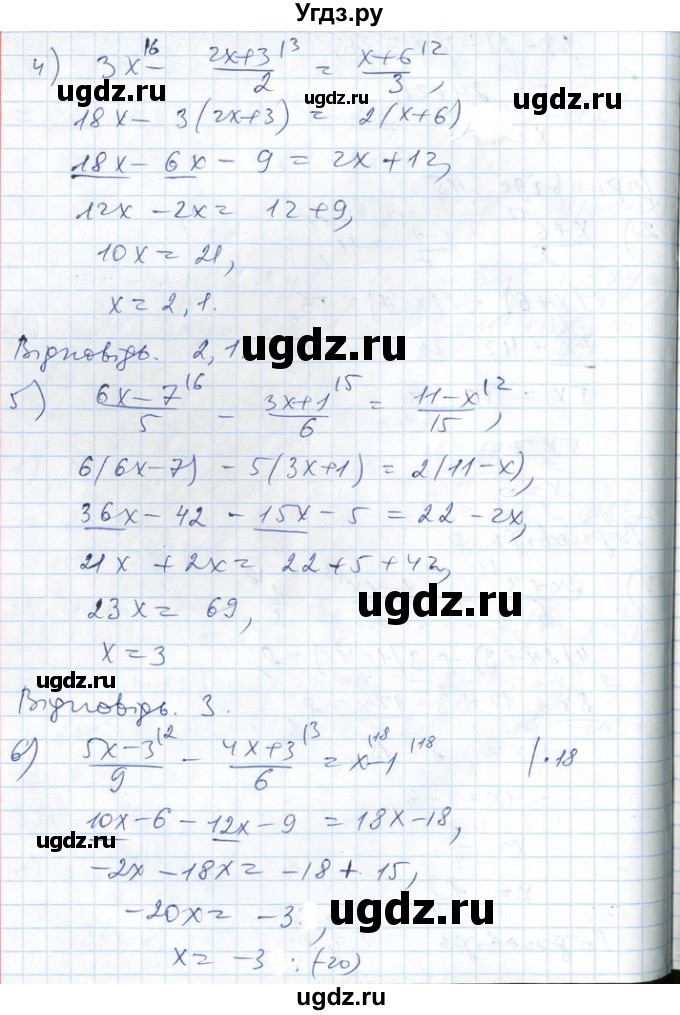 Угдз.ру
4) 3x^{16} - (2x+3)/2^{13} = (x+6)/3^{12},
18x - 3(2x+3) = 2(x+6)
18x - 6x - 9 = 2x + 12,
12x - 2x = 12 + 9,
10x = 21,
x = 2,1.
Відповідь. 2,1
5) (6x-7)/5^{16} - (3x+1)/6^{15} = (11-x)/15^{12},
6(6x-7) - 5(3x+1) = 2(11-x),
36x - 42 - 15x - 5 = 22 - 2x,
21x + 2x = 22 + 5 + 42,
23x = 69,
x = 3
Відповідь. 3.
6) (5x-3)/9^{12} - (4x+3)/6^{13} = x^{118} - 1^{118} | · 18
10x - 6 - 12x - 9 = 18x - 18,
-2x - 18x = -18 + 15,
-20x = -3,
x = -3 : (-20)
ugdz.ru
ugdz.ru
ugdz.ru
ugdz.ru
ugdz.ru
ugdz.ru
ugdz.ru
ugdz.ru
ugdz.ru
ugdz.ru
ugdz.ru
ugdz.ru
ugdz.ru